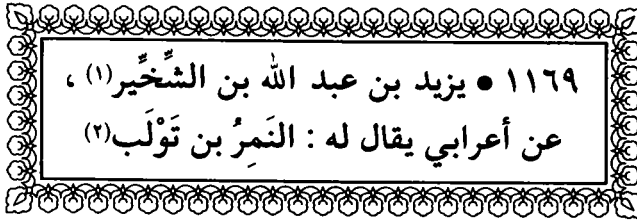 ١١٦٩ ● يزيد بن عبد الله بن الشِّخِّير(١) ،
عن أعرابي يقال له : النَمِرُ بن تَوْلَب(٢)